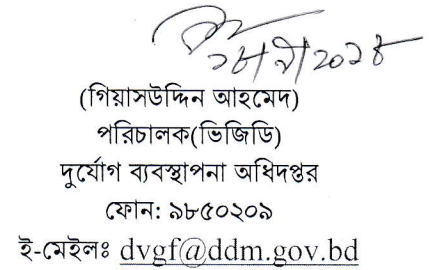 (গিয়াসউদ্দিন আহমেদ)
পরিচালক(ভিজিডি)
দুর্যোগ ব্যবস্থাপনা অধিদপ্তর
ফোন: ৯৮৫০২০৯
ই-মেইলঃ dvgf@ddm.gov.bd